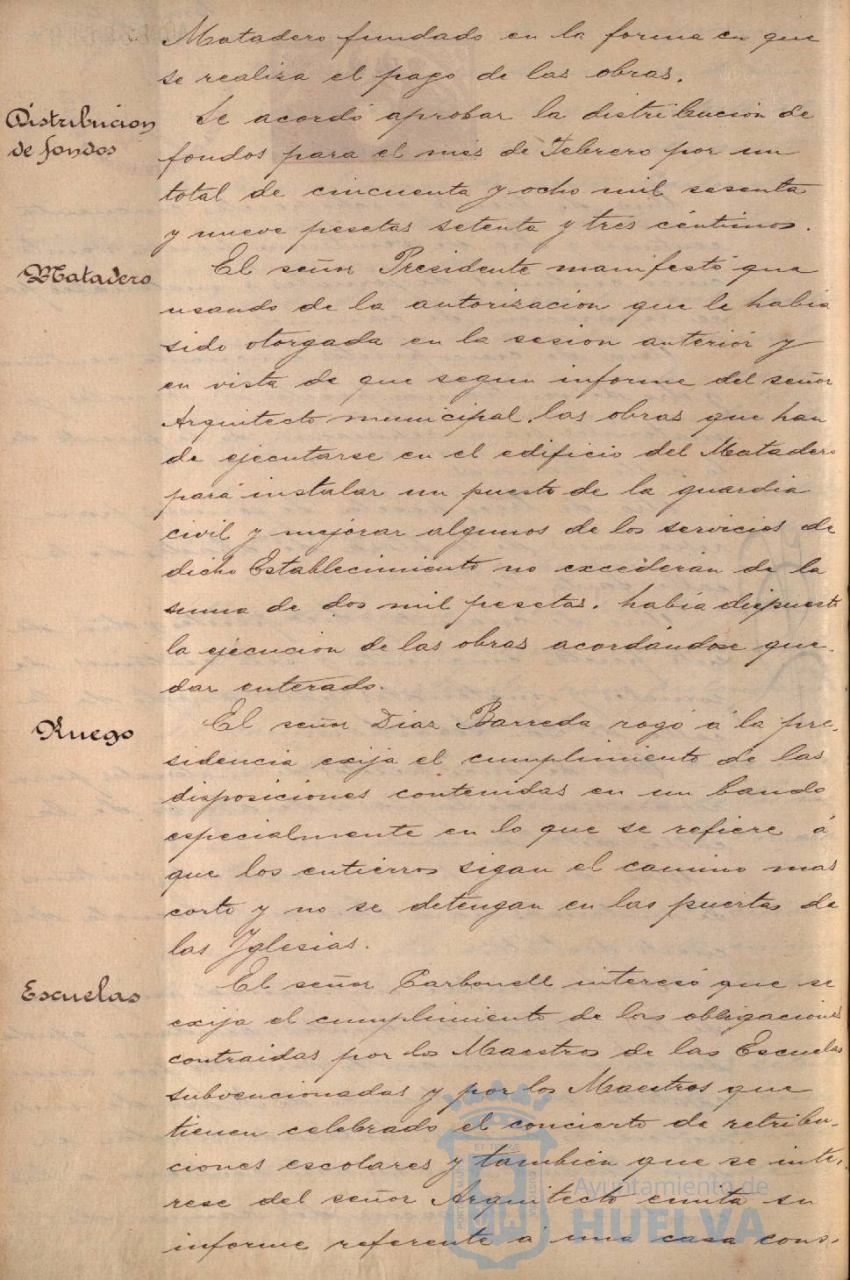 Matadero fundado en la forma en que
se realiza el pago de las obras.
Distribucion
de fondos
Se acordó aprobar la distribucion de
fondos para el mes de Febrero por un
total de cincuenta y ocho mil sesenta
y nueve pesetas setenta y tres céntimos.
Matadero
El señor Presidente manifestó que
usando de la autorizacion que le habia
sido otorgada en la sesion anterior y
en vista de que segun informe del señor
Arquitecto municipal, las obras que han
de ejecutarse en el edificio del Matadero
para instalar un puesto de la guardia
civil y mejorar algunos de los servicios de
dicho Establecimiento no excederán de la
suma de dos mil pesetas, habia dispuesto
la ejecucion de las obras acordándose que-
dar enterado.
Ruego
El señor Diaz Barreda rogó á la pre-
sidencia exija el cumplimiento de las
disposiciones contenidas en un bando
especialmente en lo que se refiere á
que los entierros sigan el camino mas
corto y no se detengan en las puertas de
las Iglesias.
Escuelas
El señor Carbonell interesó que se
exija el cumplimiento de las obligaciones
contraidas por los Maestros de las Escuelas
subvencionadas y por los Maestros que
tienen celebrado el concierto de retribu-
ciones escolares y tambien que se inte-
rese del señor Arquitecto emita su
informe referente á una casa cons-
Ayuntamiento de
HUELVA